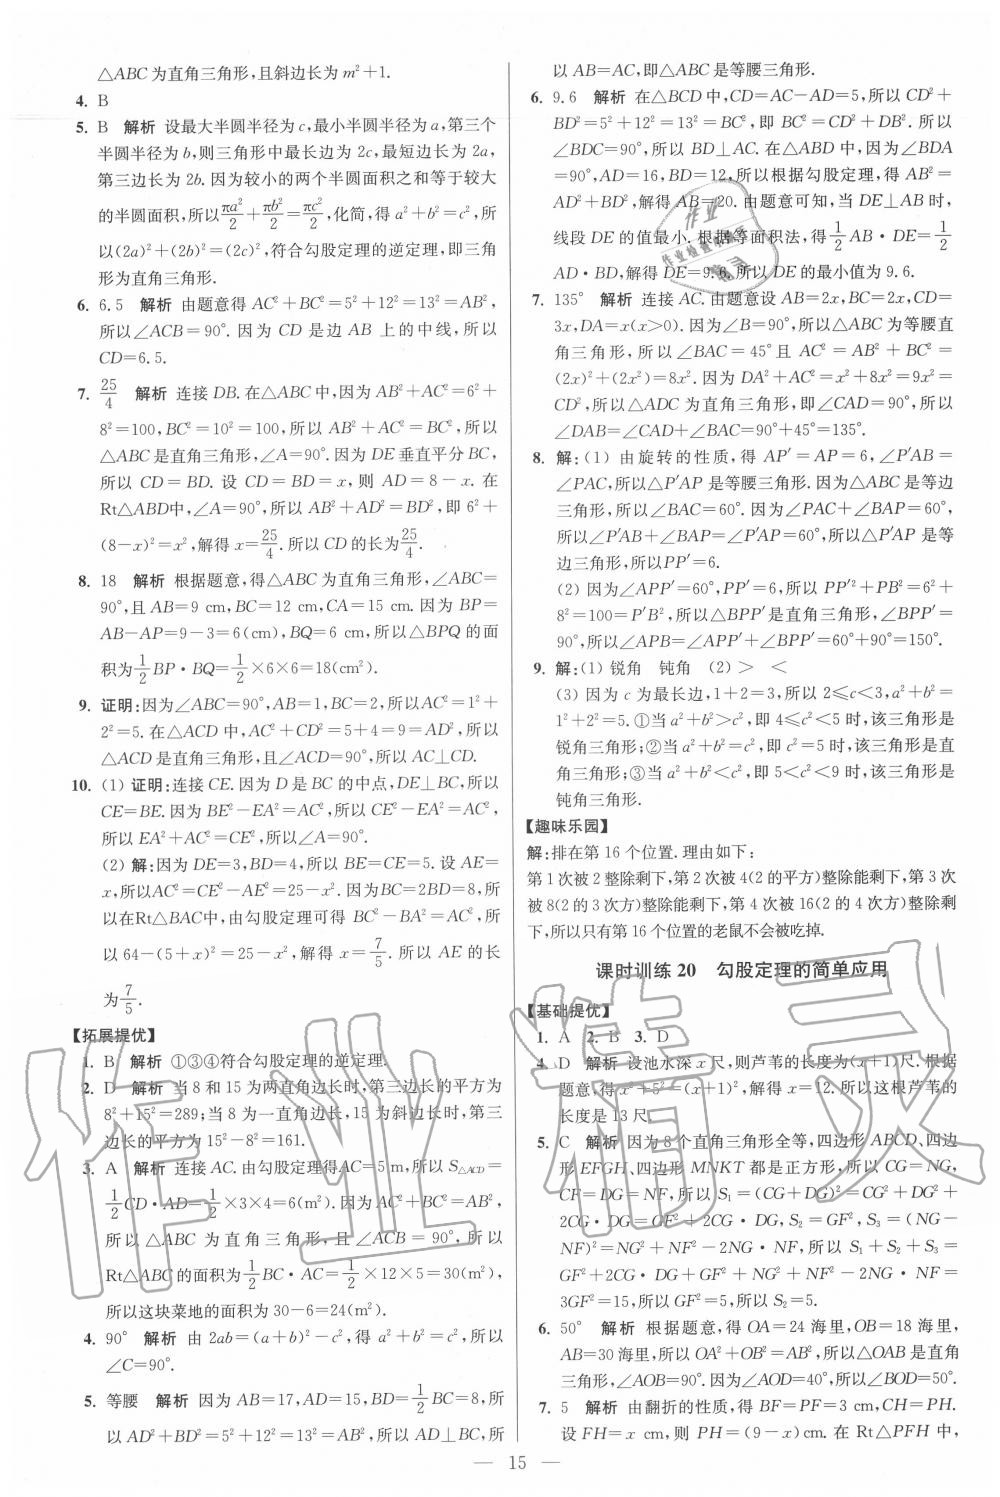 △ABC为直角三角形,且斜边长为m²+1.
4. B
5. B 解析 设最大半圆半径为c,最小半圆半径为a,第三个
半圆半径为b,则三角形中最长边为2c,最短边长为2a,
第三边长为2b.因为较小的两个半圆面积之和等于较大
的半圆面积,所以πa²/2+πb²/2=πc²/2,化简,得a²+b²=c²,所
以(2a)²+(2b)²=(2c)²,符合勾股定理的逆定理,即三角
形为直角三角形.
6. 6.5 解析 由题意得AC²+BC²=5²+12²=13²=AB²,
所以∠ACB=90°.因为CD是边AB上的中线,所以
CD=6.5.
7. 25/4 解析 连接DB.在△ABC中,因为AB²+AC²=6²+
8²=100,BC²=10²=100,所以AB²+AC²=BC²,所以
△ABC是直角三角形,∠A=90°.因为DE垂直平分BC,
所以CD=BD.设CD=BD=x,则AD=8-x.在
Rt△ABD中,∠A=90°,所以AB²+AD²=BD²,即6²+
(8-x)²=x²,解得x=25/4.所以CD的长为25/4.
8. 18 解析 根据题意,得△ABC为直角三角形,∠ABC=
90°,且AB=9 cm,BC=12 cm,CA=15 cm.因为BP=
AB-AP=9-3=6(cm),BQ=6 cm,所以△BPQ的面
积为1/2BP·BQ=1/2×6×6=18(cm²).
9. 证明:因为∠ABC=90°,AB=1,BC=2,所以AC²=1²+
2²=5.在△ACD中,AC²+CD²=5+4=9=AD²,所以
△ACD是直角三角形,且∠ACD=90°,所以AC⊥CD.
10. (1)证明:连接CE.因为D是BC的中点,DE⊥BC,所以
CE=BE.因为BE²-EA²=AC²,所以CE²-EA²=AC²,
所以EA²+AC²=CE²,所以∠A=90°.
(2)解:因为DE=3,BD=4,所以BE=CE=5.设AE=
x,所以AC²=CE²-AE²=25-x².因为BC=2BD=8,所
以在Rt△BAC中,由勾股定理可得BC²-BA²=AC²,所
以64-(5+x)²=25-x²,解得x=7/5.所以AE的长
为7/5.
【拓展提优】
1. B 解析 ①③④符合勾股定理的逆定理.
2. D 解析 当8和15为两直角边长时,第三边长的平方为
8²+15²=289;当8为一直角边长,15为斜边长时,第三
边长的平方为15²-8²=161.
3. A 解析 连接AC.由勾股定理得AC=5 m,所以S△ACD=
1/2CD·AD=1/2×3×4=6(m²).因为AC²+BC²=AB²,
所以△ABC为直角三角形,且∠ACB=90°,所以
Rt△ABC的面积为1/2BC·AC=1/2×12×5=30(m²),
所以这块菜地的面积为30-6=24(m²).
4. 90° 解析 由2ab=(a+b)²-c²,得a²+b²=c²,所以
∠C=90°.
5. 等腰 解析 因为AB=17,AD=15,BD=1/2BC=8,所
以AD²+BD²=5²+12²=13²=AB²,所以AD⊥BC,所
以AB=AC,即△ABC是等腰三角形.
6. 9.6 解析 在△BCD中,CD=AC-AD=5,所以CD²+
BD²=5²+12²=13²=BC²,即BC²=CD²+DB².所以
∠BDC=90°,所以BD⊥AC.在△ABD中,因为∠BDA
=90°,AD=16,BD=12,所以根据勾股定理,得AB²=
AD²+BD²,解得AB=20.由题意可知,当DE⊥AB时,
线段DE的值最小.根据等面积法,得1/2AB·DE=1/2
AD·BD,解得DE=9.6,所以DE的最小值为9.6.
7. 135° 解析 连接AC.由题意设AB=2x,BC=2x,CD=
3x,DA=x(x>0).因为∠B=90°,所以△ABC为等腰直
角三角形,所以∠BAC=45°且AC²=AB²+BC²=
(2x)²+(2x²)=8x².因为DA²+AC²=x²+8x²=9x²=
CD²,所以△ADC为直角三角形,即∠CAD=90°,所以
∠DAB=∠CAD+∠BAC=90°+45°=135°.
8. 解:(1)由旋转的性质,得AP′=AP=6,∠P′AB=
∠PAC,所以△P′AP是等腰三角形.因为△ABC是等边
三角形,所以∠BAC=60°.因为∠PAC+∠BAP=60°,
所以∠P′AB+∠BAP=∠P′AP=60°,所以△P′AP是等
边三角形,所以PP′=6.
(2)因为∠APP′=60°,PP′=6,所以PP′²+PB²=6²+
8²=100=P′B²,所以△BPP′是直角三角形,∠BPP′=
90°,所以∠APB=∠APP′+∠BPP′=60°+90°=150°.
9. 解:(1)锐角 钝角 (2)> <
(3)因为c为最长边,1+2=3,所以2≤c<3,a²+b²=
1²+2²=5.①当a²+b²>c²,即4≤c²<5时,该三角形是
锐角三角形;②当a²+b²=c²,即c²=5时,该三角形是直
角三角形;③当a²+b²<c²,即5<c²<9时,该三角形是
钝角三角形.
【趣味乐园】
解:排在第16个位置.理由如下:
第1次被2整除剩下,第2次被4(2的平方)整除能剩下,第3次
被8(2的3次方)整除能剩下,第4次被16(2的4次方)整除剩
下,所以只有第16个位置的老鼠不会被吃掉.
课时训练20 勾股定理的简单应用
【基础提优】
1. A 2. B 3. D
4. D 解析 设池水深x尺,则芦苇的长度为(x+1)尺.根据
题意,得x²+5²=(x+1)²,解得x=12.所以这根芦苇的
长度是13尺.
5. C 解析 因为8个直角三角形全等,四边形ABCD、四边
形EFGH、四边形MNKT都是正方形,所以CG=NG,
CF=DG=NF,所以S₁=(CG+DG)²=CG²+DG²+
2CG·DG=GF²+2CG·DG,S₂=GF²,S₃=(NG-
NF)²=NG²+NF²-2NG·NF,所以S₁+S₂+S₃=
GF²+2CG·DG+GF²+NG²+NF²-2NG·NF=
3GF²=15,所以GF²=5,所以S₂=5.
6. 50° 解析 根据题意,得OA=24海里,OB=18海里,
AB=30海里,所以OA²+OB²=AB²,所以△OAB是直角
三角形,∠AOB=90°.因为∠AOD=40°,所以∠BOD=50°.
7. 5 解析 由翻折的性质,得BF=PF=3 cm,CH=PH.
设FH=x cm,则PH=(9-x)cm.在Rt△PFH中,
— 15 —
作业精灵